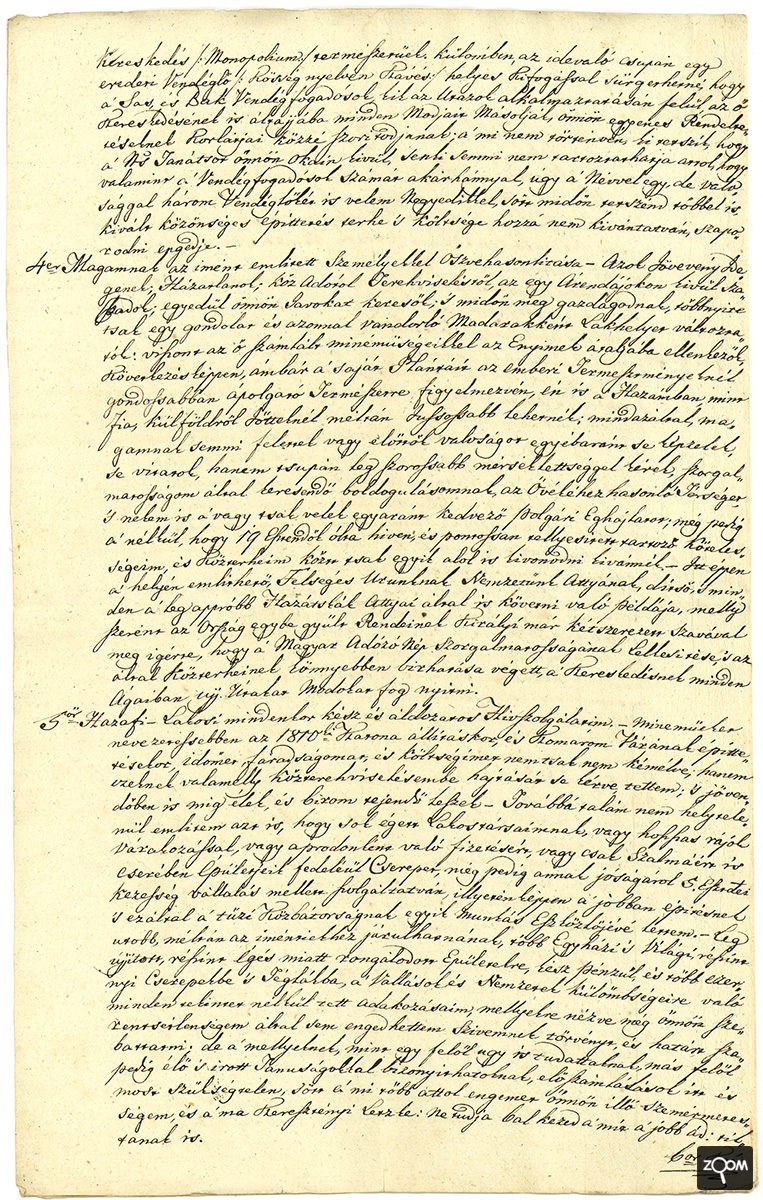 Kereskedés /: Monopolium :/ természetüek. külömben, az idevaló csupán egy
eredeti Vendéglő /: Község nyelvén Kávés :/ helyes kifogással sürgethetné, hogy
a' Sas, és Bak Vendégfogadósok, kik az Utazok alkalmaztatásán felül az ő
Kereskedésének is általjába minden Módjait
Korlátjai közzé szoritódjanak; a mi nem történvén, ki tetszik, hogy
a' Ns Tanátsot önnön Okain kivül, senki semmi nem tartoztathatja attol, hogy
valamint a' Vendégfogadósok Számát akárhánnyal, ugy a' Névvel egy, de való-
sággal három Vendéglőkét is velem Negyedikkel, sőtt midőn tetszend többel is,
kivált közönséges épittetés terhe 's költsége hozzá nem kivántatván, szapo-
rodni engedje. –
4er Magamnak az imént emlitett Személyekkel Öszvehasonlitása – Azok Jövevény Ide-
genek; Házatlanok; köz Adótol Terehviseléstől, az egy Árendájokon kivül Sza-
badok, egyedül önnön Javokat keresők; 's midőn meg gazdagodnak, többnyire
tsak egy gondolat és azonnal vándorló Madarakként Lakhelyet változta-
tók: viszont az ő szamláltt minémüségeikkel az Enyimek általjába ellenkezők.
Következésképpen, ámbár a' saját Plántáit az emberi Természetményeknél
gondossabban ápolgató Természetre figyelmezvén, én is a Hazámban, mint
Fia, külföldről Jötteknél méltán Jussossabb lehetnék; mindazáltal, ma-
gamnak semmi felettek vagy előttök valóságot egyébaránt se képzelek,
se vitatok, hanem tsupán leg szorossabb mérsékletességgel kérek, szorgal-
matosságom által keresendő boldogulásomnak, az Övékéhez hasonló Térséget
's nekem is a' vagy tsak velek egyaránt kedvező Polgári Éghajlatot; még pedig
a' nélkül, hogy 19 Esztendők olta hiven, és pontossan tellyesitett tartozó Köteles-
ségeim, és Közterheim közzt tsak egyik alol is kivonódni kivánnék. – Itt éppen
a' helyén emlithető, Felséges Urunknak Nemzetünk Attyának, dicső, 's min-
den a' leg apróbb Hazátskák Attyai által is követni való példája, melly
szerént az Ország egybe gyült Rendeinek Királyi már kétszerezett Szavával
meg igérte, hogy a' Magyar Adózó Nép Szorgalmatosságának kellesitése, 's az
által Közterheinek könnyebben birhatása végett, a' Kereskedésnek minden
Ágaiban uj Utakat Módokat fog nyitni.
5ör Hazafi – Lakosi mindenkor kész és áldozatos Hivszolgálatim. – Minemüeket
nevezetessebben az 1810ki Katona állitáskor, és Komárom Várának épitte-
tésekor, idömet, fáradságomat, és költségimet nemtsak nem kémélve; hanem
ezeknek valamelly közterehviselésembe hajtását se kérve tettem; 's jöven-
dőben is mig élek, és birom tejendő leszek – Továbbá talán nem helytele-
nül emlitem azt is, hogy sok égett Lakostársaimnak, vagy hosszas rájok
várakozással, vagy aprodonként való fizetésért, vagy csak Szalmáért is
cserében Épületeik fedeléül Cserepet, még pedig annak jóságáról 5. Esztei
kezesség vállalás mellett szolgáltatván, illyeténképpen a jobban épitésnek
's ezáltal a' tüzi Közbátorságnak egyik munkás Eszközlőjévé lettem. – Leg
utobb, méltán az iméntiekhez járulhatnának, több Egyházi 's Világi, részint
ujitott, részint égés miatt rongálódott Épületekre, kész pénzűl és több ezer-
nyi Cserepekbe 's Téglákba, a' Vallások és Nemzetek külömbségeire való
minden tekintet nélkül tett adakozásaim, mellyekre nézve még önnön Sze-
rentsétlenségem által sem engedhettem Szivemnek törvényt, és határt sza-
battatni; de a mellyeknek, mint egy felől ugy is tudattaknak, más felől
pedig élő 's irott Tanuságokkal bizonyithatóknak, elő számlálások itt és
most szükségtelen, sőtt a mi több attol engemet önnön illő szemérmetes-
ségem, és a' ma Keresztényi Letzke: Ne tudja bal kezed a mit a jobb ád: tilt
tanak is.
ZOOM